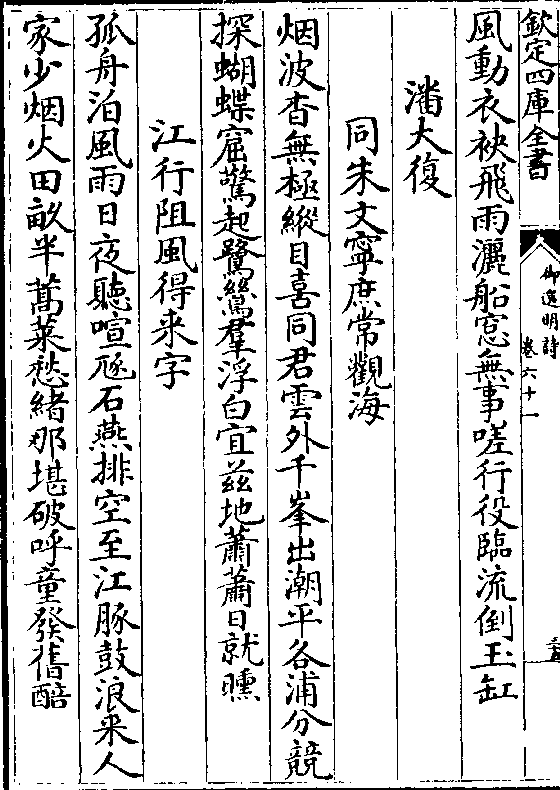 欽定四庫全書
御選明詩
卷六十一
風動衣袂飛雨灑船窓無事嗟行役臨流倒玉缸
潘大復
同朱文寧庶常觀海
烟波杳無極縱目喜同君雲外千峯出潮平各浦分競
探蝴蝶窟驚起鷺鷥羣浮白宜兹地蕭蕭日就曛
江行阻風得來字
孤舟泊風雨日夜聽喧豗石燕排空至江豚鼓浪来人
家少烟火田畝半蒿萊愁緒那堪破呼童發舊醅